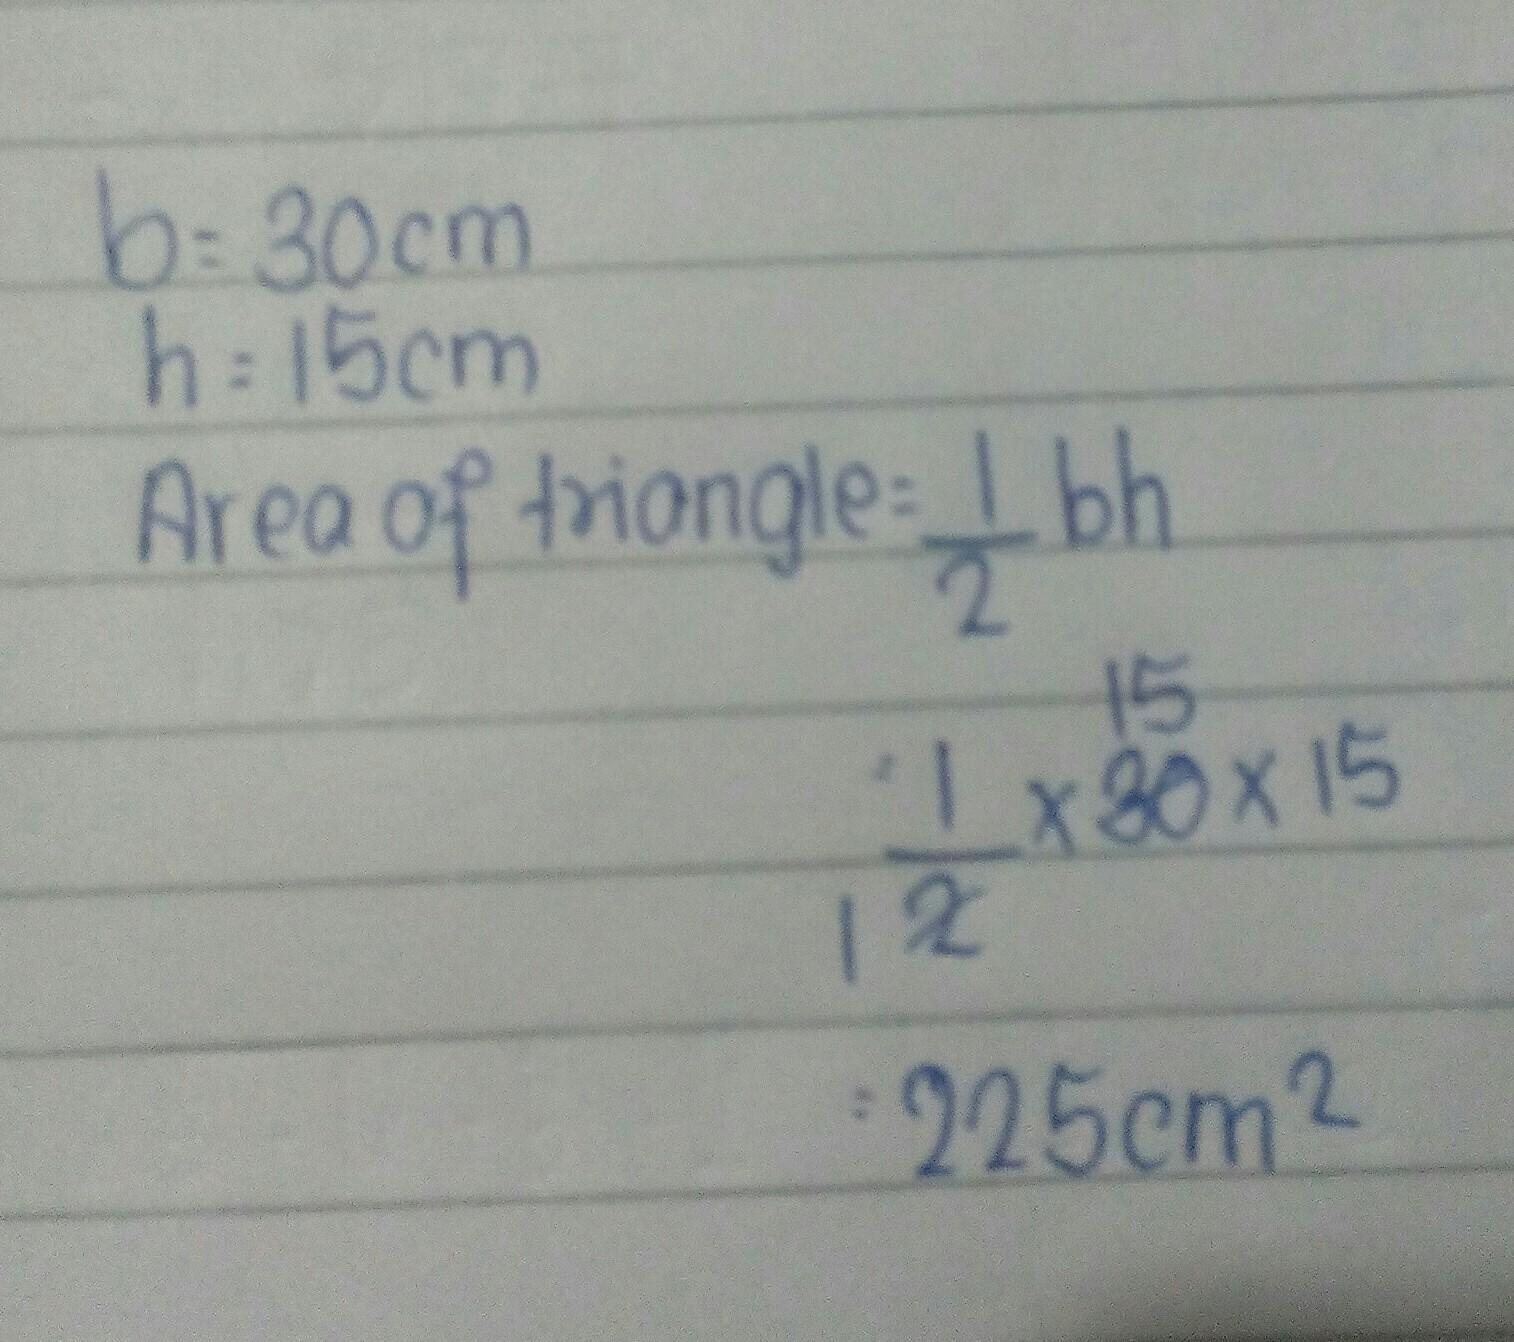 b= 30cm
h=15cm
Area of triangle= 1/2 bh
15
= 1/2 x 30 x 15
1
= 225cm²